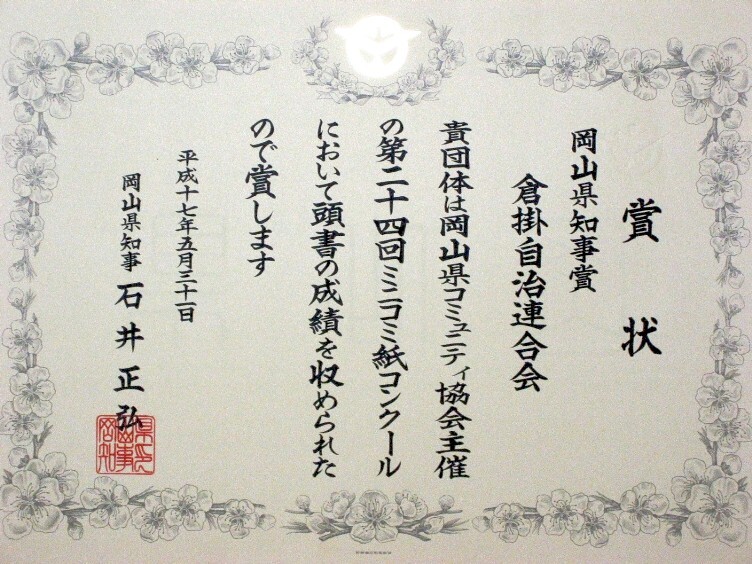 賞状
岡山県知事賞
倉掛自治連合会
貴団体は岡山県コミュニティ協会主催
の第二十四回ミニコミ紙コンクール
において頭書の成績を収められた
ので賞します
平成十七年五月三十一日
岡山県知事 石井正弘